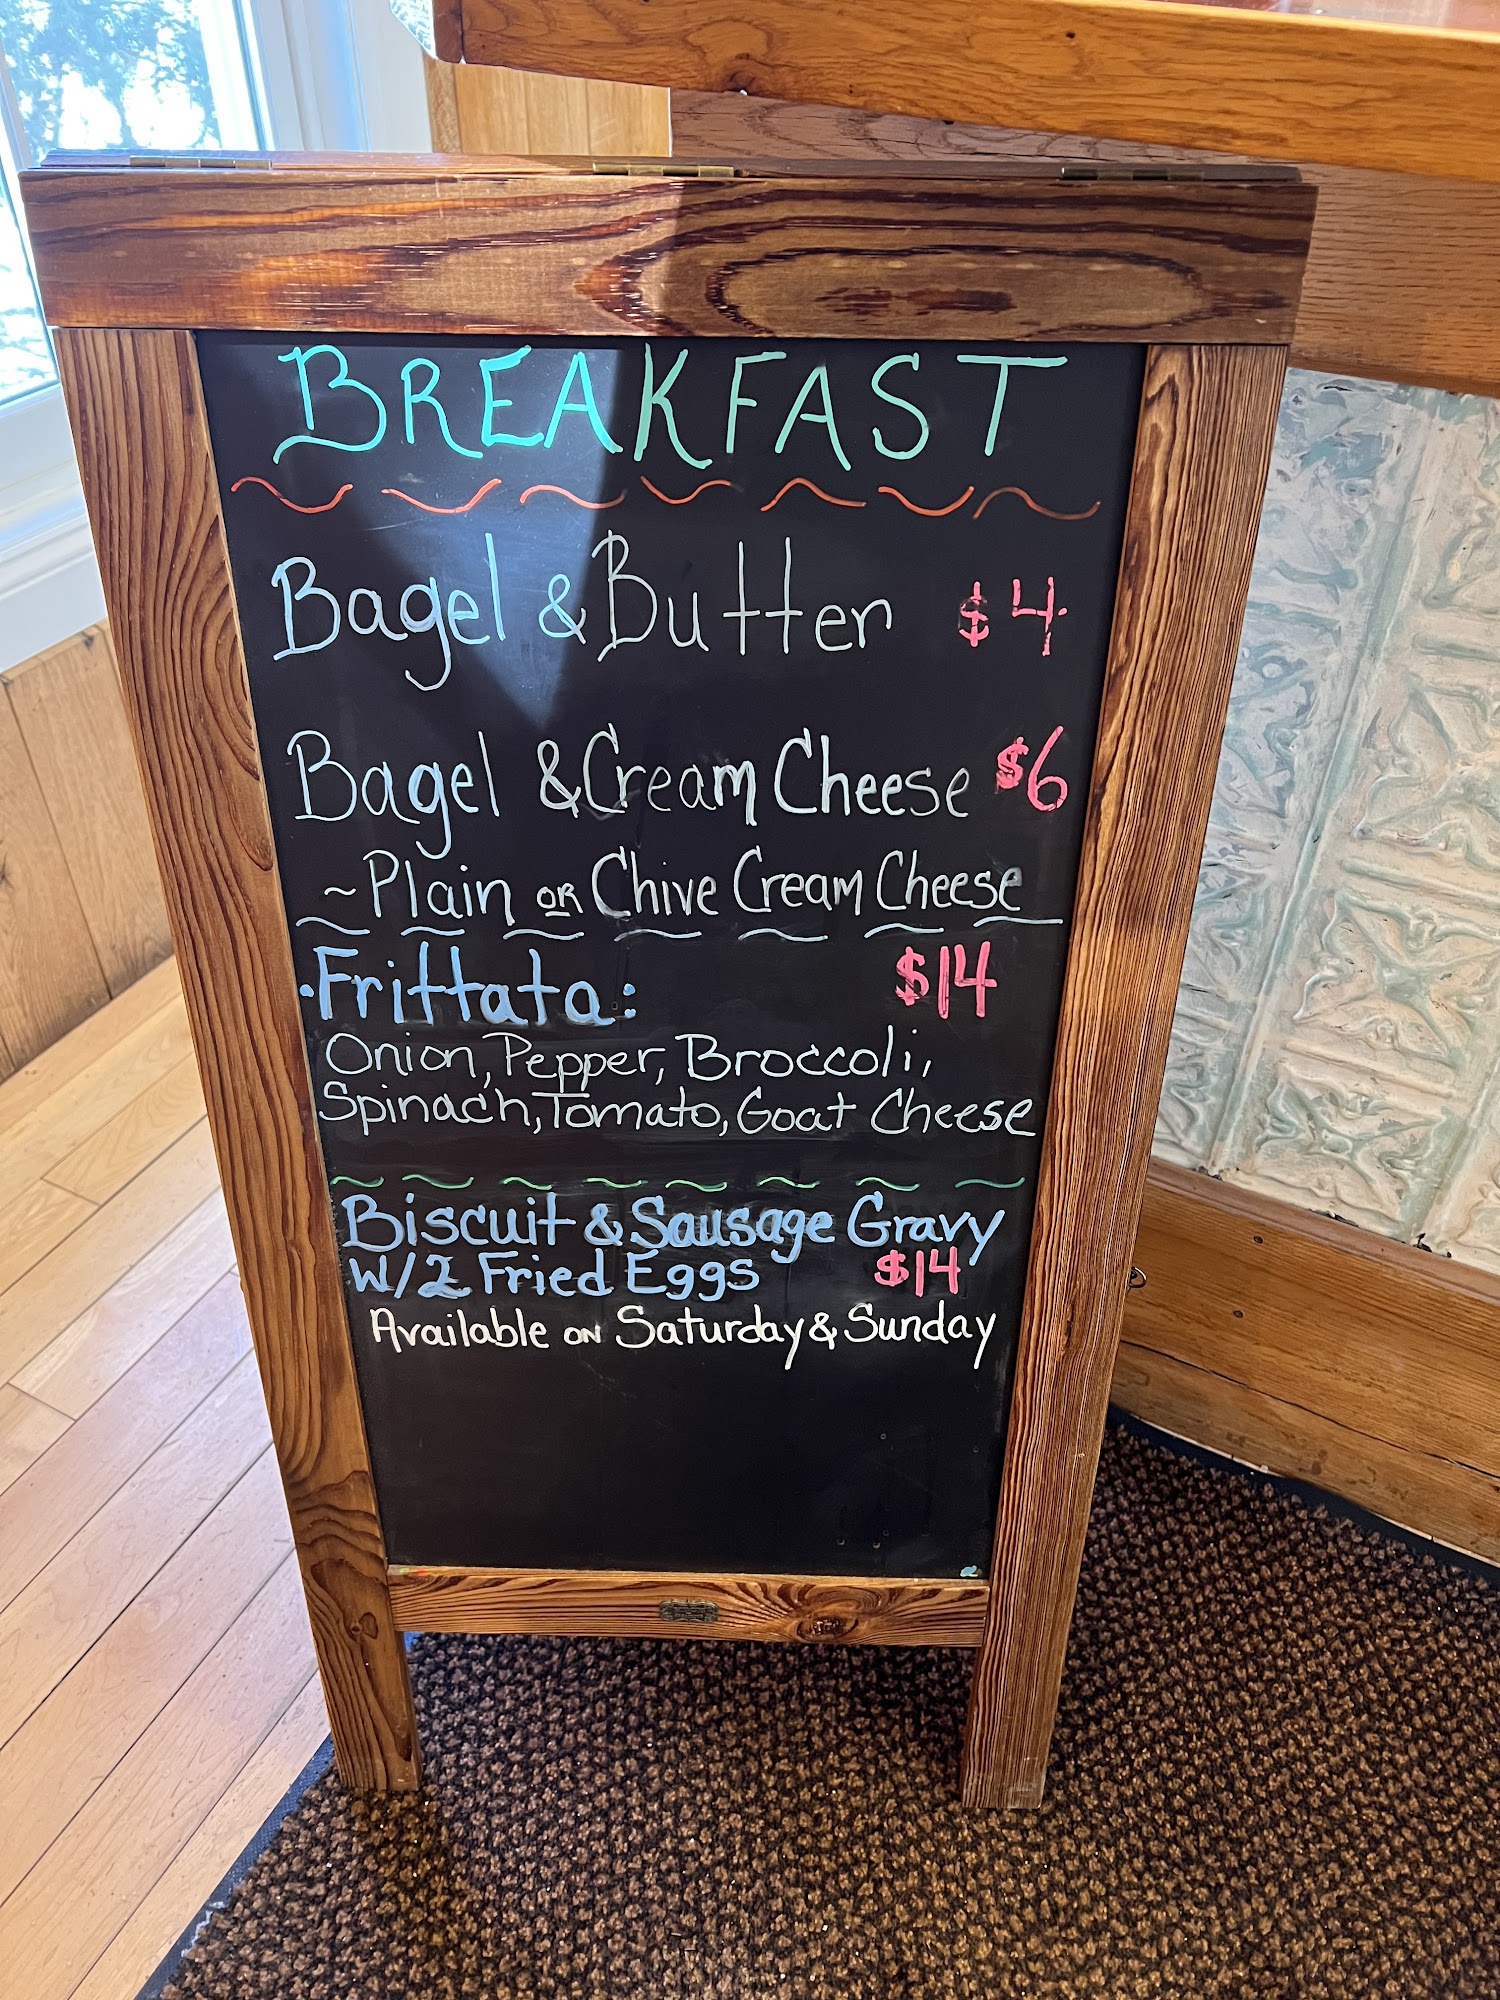 BREAKFAST
Bagel & Butter $4.
Bagel & Cream Cheese $6
~Plain OR Chive Cream Cheese
·Frittata: $14
Onion, Pepper, Broccoli,
Spinach, Tomato, Goat Cheese
Biscuit & Sausage Gravy
W/2 Fried Eggs $14
Available ON Saturday & Sunday